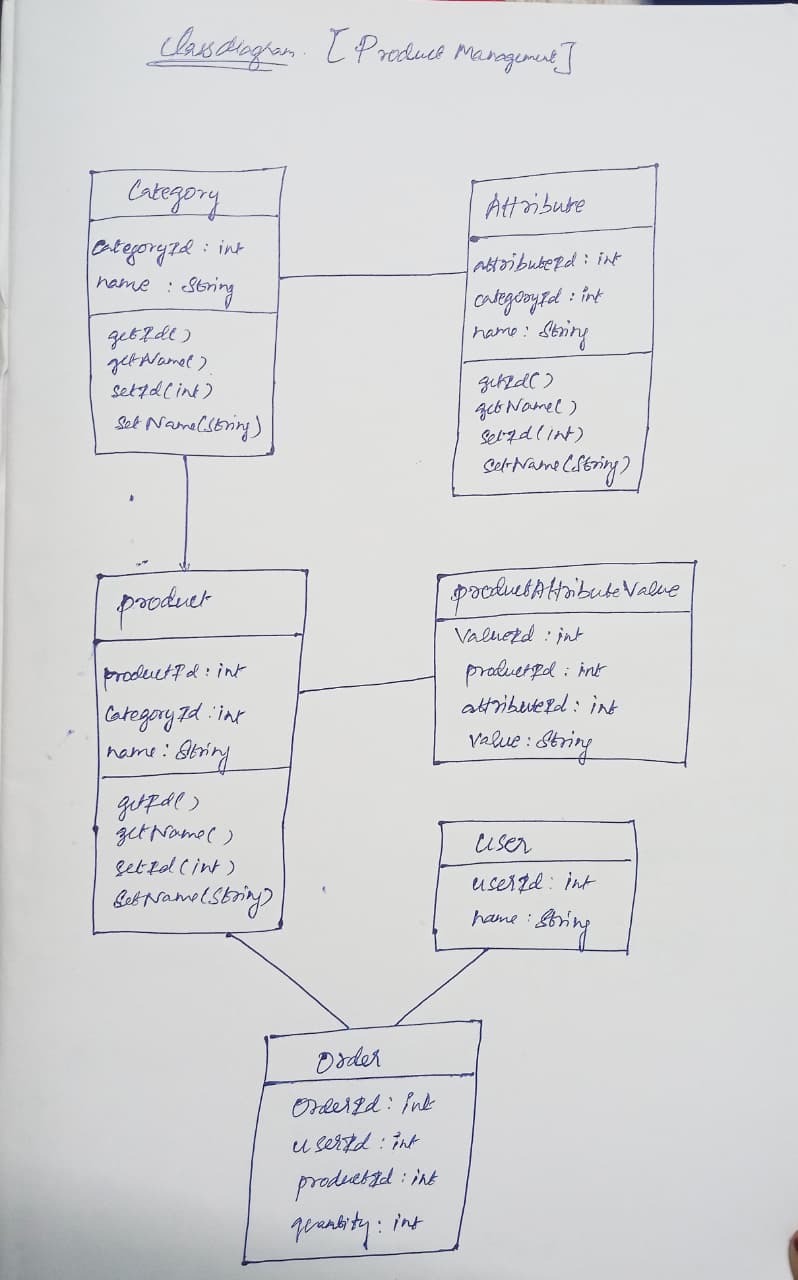 Classdiagram. [Product Management]
Category
CategoryId : int
name : String
getId()
getName()
setId(int)
SetName(String)
Attribute
attributeId : int
categoryId : int
name : String
getId()
getName()
setId(int)
SetName(String)
product
productId : int
CategoryId : int
name : String
getId()
getName()
setId(int)
SetName(String)
productAttributeValue
ValueId : int
productId : int
attributeId : int
Value : String
User
userId : int
name : String
Order
OrderId : int
userId : int
productId : int
quantity : int